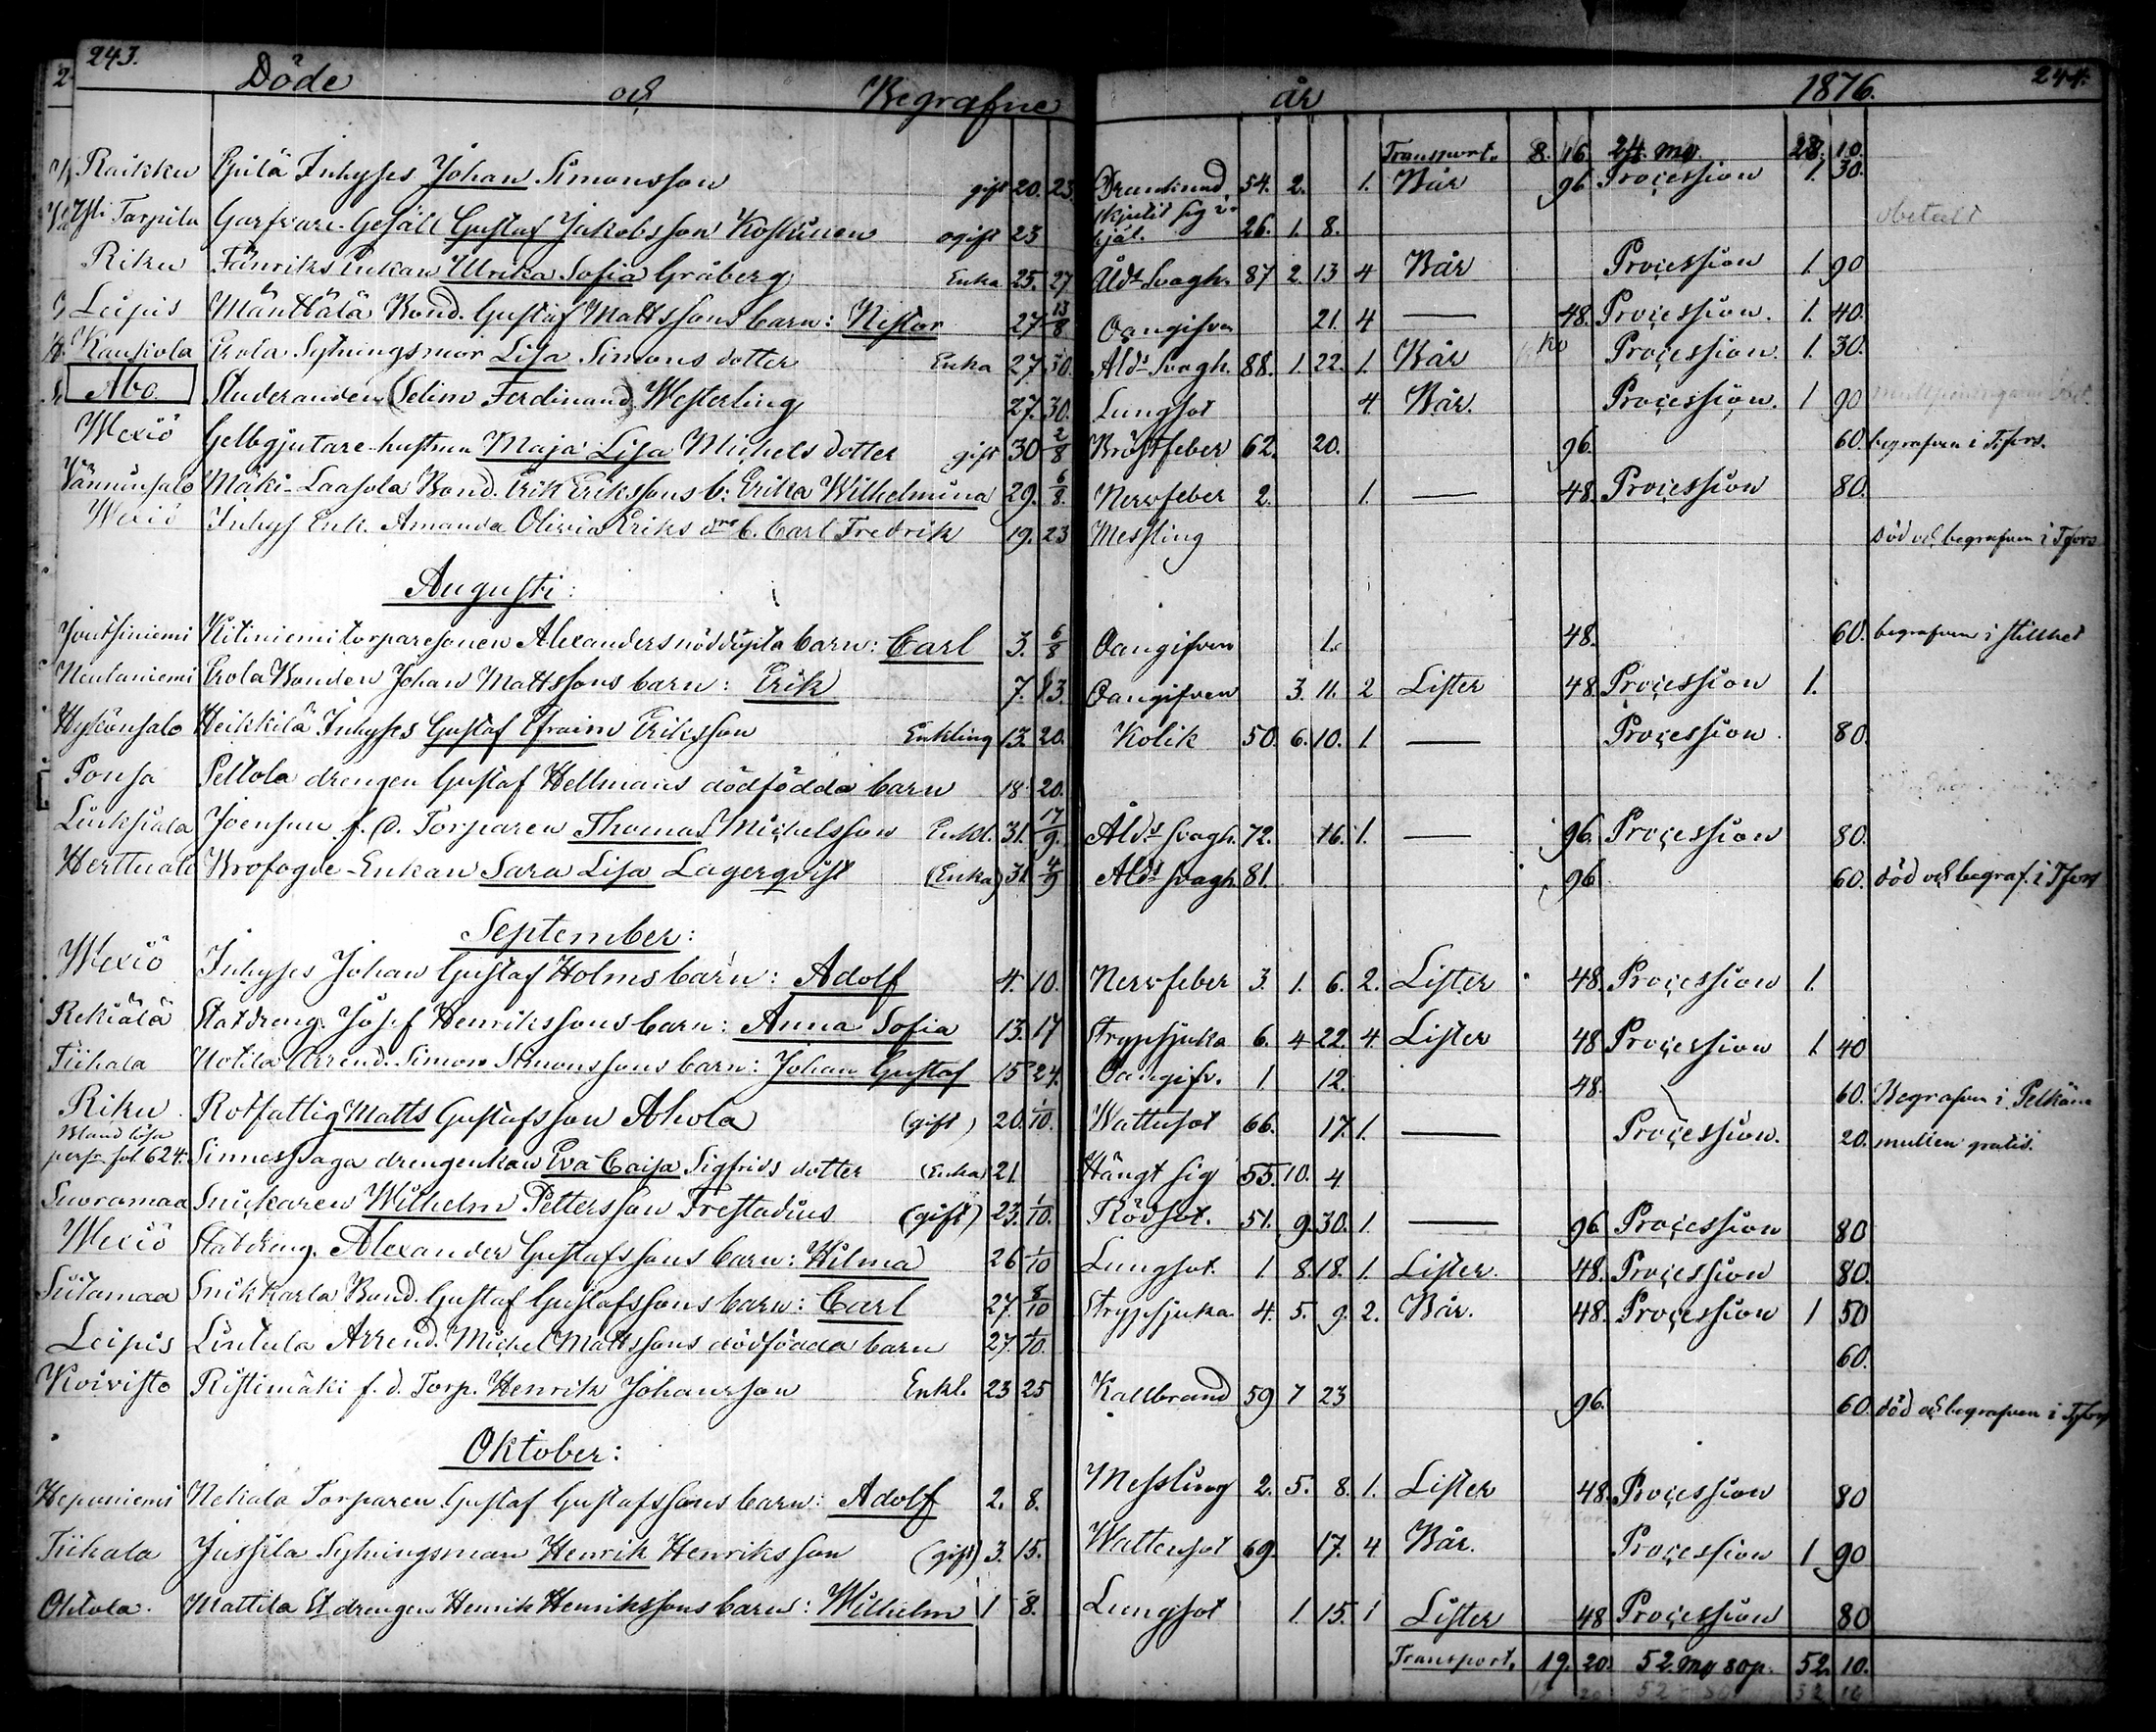 243. Döde och Begrafne år 1876. 244.
Transport. 8. 16. 24. my. 28. 10.
Raikku Inhyses Johan Simonsson gift 20. 23. 54. 2. 1. Bår 96 Procession 1. 30.
skjutit sig i
Yli. Torpila Garfvare-Gesäll Gustaf Jakobsson Koskinen ogift 23 hjäl. 26. 1. 8. obetalt
Riku Fänriks Enkan Ulrika Sofia Gråberg Enka 25. 27. Åldr Svagh. 87 2. 13 4 Bår Procession 1. 90
Leipis Mänttälä Bond. Gustaf Mattssons barn: Nestor 27. 13/8 Oangifven 21. 4 — 48. Procession. 1. 40.
Kaukola Erola Sytningsmor Lisa Simons dotter Enka 27. 30. Åldr Svagh. 88. 1. 22. 1. Bår Procession. 1. 30.
Åbo. Studeranden (Selim Ferdinand) Westerling 27. 30. Lungsot 4 Bår. Procession. 1 90
Wexiö Gelbgjutare-hustrun Maja Lisa Michels dotter gift 30 2/8 Bröstfeber 62. 20. 96. 60. begrafven i Tfors.
Vänninsalo Mäki-Laasola Bond. Erik Erikssons b: Erika Wilhelmina 29. 6/8. Nervfeber 2. 1. — 48. Procession 80.
Wexiö Inhys Enk. Amanda Olivia Eriks drs b. Carl Fredrik 19. 23 Messling död och begrafven i Tfors
Augusti:
Jouttiniemi Kitiniemi torparesonen Alexanders nöddöpta barn: Carl 3. 6/8 Oangifven 1. 48. 60. begrafven i stillhet
Neulaniemi Erola Bonden Johan Mattssons barn: Erik 7. 13. Oangifven 3. 11. 2 Lister 48. Procession 1.
Hykönsalo Heikkilä Inhyses Gustaf Efraim Eriksson Enkling 13. 20. Kolik 50. 6. 10. 1. — Procession. 80.
Ponsa Peltola drengen Gustaf Hellmans dödfödda barn 18. 20.
Liuksiala Joensuu f. d. Torparen Thomas Michelsson Enkl. 31. 17/9. Åldr Svagh. 72. 16. 1. — 96. Procession 80.
Herttuala Brofogde-Enkan Sara Lisa Lagerqvist (Enka) 31. 4/9 Åldr svagh 81. 96 60. död och begraf. i Tfors
September:
Wexiö Inhyses Johan Gustaf Holms barn: Adolf 4. 10. Nervfeber 3. 1. 6. 2. Lister 48. Procession 1.
Rekiälä Statdreng. Josef Henrikssons barn: Anna Sofia 13. 17 Strypsjuka 6. 4 22. 4. Lister 48 Procession 1. 40
Tiihala Uotila Arrend. Simon Simonssons barn: Johan Gustaf 15 24. Oangifv. 1. 12. 48. 60. Begrafven i Pelkäne
Riku Rotfattig Matts Gustafsson Ahola (gift) 20. 1/10. Wattusot 66. 17. 1. — Procession. 20. mullen gratis.
Bland lösa
pers. fol 624. Sinnessvaga drengenkan Eva Caisa Sigfrids dotter (Enka) 21 Hängt sig 55. 10. 4
Suoramaa Snickaren Wilhelm Pettersson Frestadius (gift) 23. 1/10. Rödsot. 51. 9. 30. 1. — 96 Procession 80
Wexiö Statdreng. Alexander Gustafssons barn: Hilma 26 1/10 Lungsot. 1. 8. 18. 1. Lister. 48. Procession 80.
Siitamaa Snikkarla Bond. Gustaf Gustafssons barn: Carl 27. 8/10 Strypsjuka 4. 5. 9. 2. Bår. 48. Procession 1 50
Leipis Lintula Arrend. Michel Mattssons dödfödda barn 27. 1/10. 60.
Koivisto Ristimäki f. d. Torp. Henrik Johansson Enkl. 23 25 Kallbrand 59 7 23 96. 60. död och begrafven i Tfors
Oktober:
Heponiemi Nekala Torparen Gustaf Gustafssons barn: Adolf 2. 8. Messling 2. 5. 8. 1. Lister 48. Procession 80
Tiihala Jussila Sytningsman Henrik Henriksson (gift) 3. 15. Wattusot 69. 17. 4 Bår. Procession 1 90
Ohtola. Mattila St drengen Henrik Henrikssons barn: Wilhelm 1 8. Lungsot 1. 15. 1 Lister 48 Procession 80
Transport. 19. 20. 52. my 80 p. 52. 10.